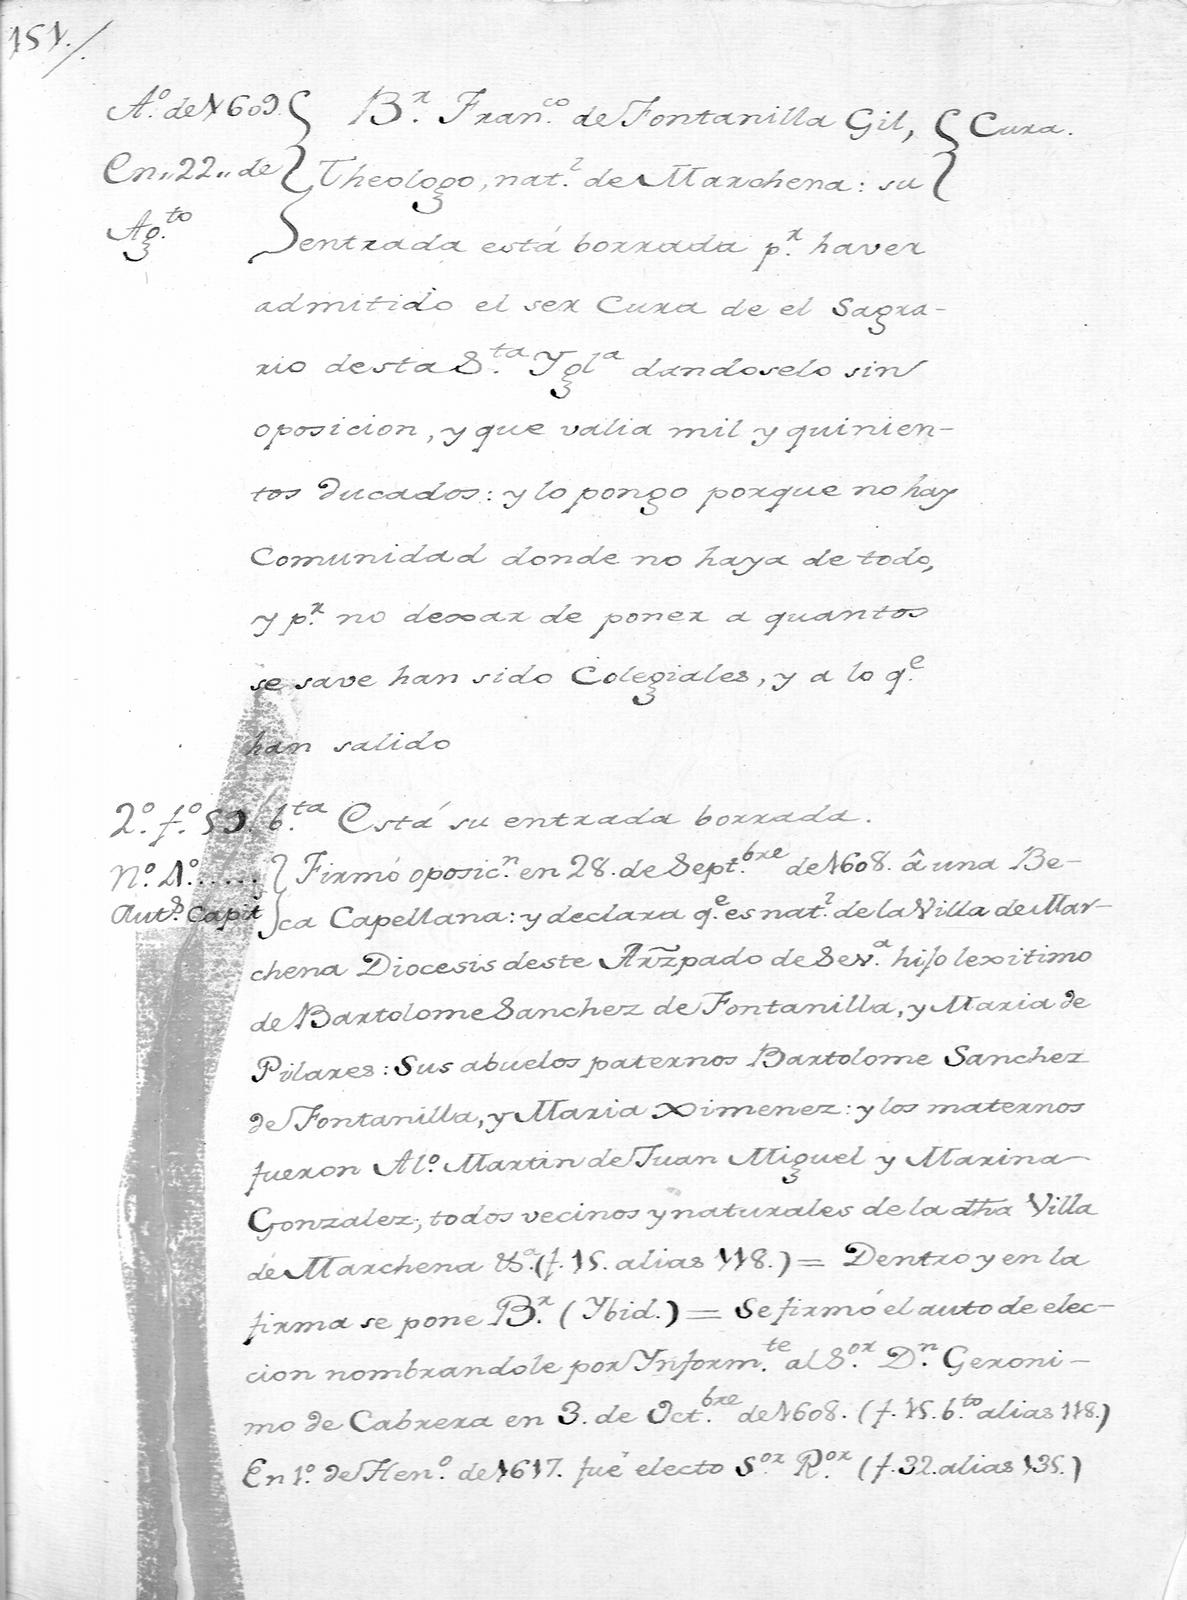 151./.
A.º de 1609. B.r Fran.co de Fontanilla Gil, Cura.
En,,22,, de Theologo, nat.l de Marchena: su
Ag.to entrada está borrada p.r haver
admitido el ser Cura de el Sagra-
rio desta S.ta Ygl.a dandoselo sin
oposicion, y que valia mil y quinien-
tos ducados: y lo pongo porque no hay
Comunidad donde no haya de todo,
y p.r no dexar de poner a quantos
se save han sido Colegiales, y a lo q.e
han salido
2.º f.º 59. b.ta Está su entrada borrada.
N.º 1.º...... Firmó oposic.n en 28. de Sept.bre de 1608. â una Be-
Aut.s Capit ca Capellana: y declara q.e es nat.l de la Villa de Mar-
chena Diocesis deste Arzpado de Sev.a hijo lexitimo
de Bartolome Sanchez de Fontanilla, y Maria de
Pilares: Sus abuelos paternos Bartolome Sanchez
de Fontanilla, y Maria Ximenez: y los maternos
fueron Al.º Martin de Juan Miguel y Marina
Gonzalez, todos vecinos y naturales de la dha Villa
de Marchena &.a (f. 15. alias 118.) = Dentro y en la
firma se pone B.r (Ybid.) = Se firmó el auto de elec-
cion nombrandole por Ynform.te al S.or D.n Geroni-
mo de Cabrera en 3. de Oct.bre de 1608. (f. 15. b.to alias 118.)
En 1.º de Hen.º de 1617. fué electo S.or R.or (f. 32. alias 135.)